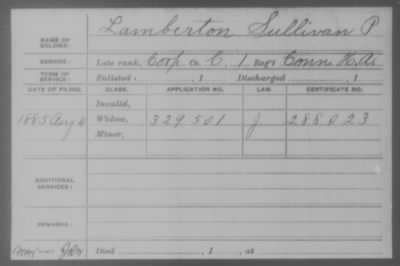 NAME OF SOLDIER: Lamberton Sullivan P
SERVICE: Late rank, Corp Co. C, 1 Reg't Conn H.A.
TERM OF SERVICE: Enlisted , 1 Discharged , 1
DATE OF FILING. CLASS. APPLICATION NO. LAW. CERTIFICATE NO.
Invalid,
1885 Aug 4 Widow, 329501 J 288023
Minor,
ADDITIONAL SERVICES:
REMARKS:
Died , 1 , at